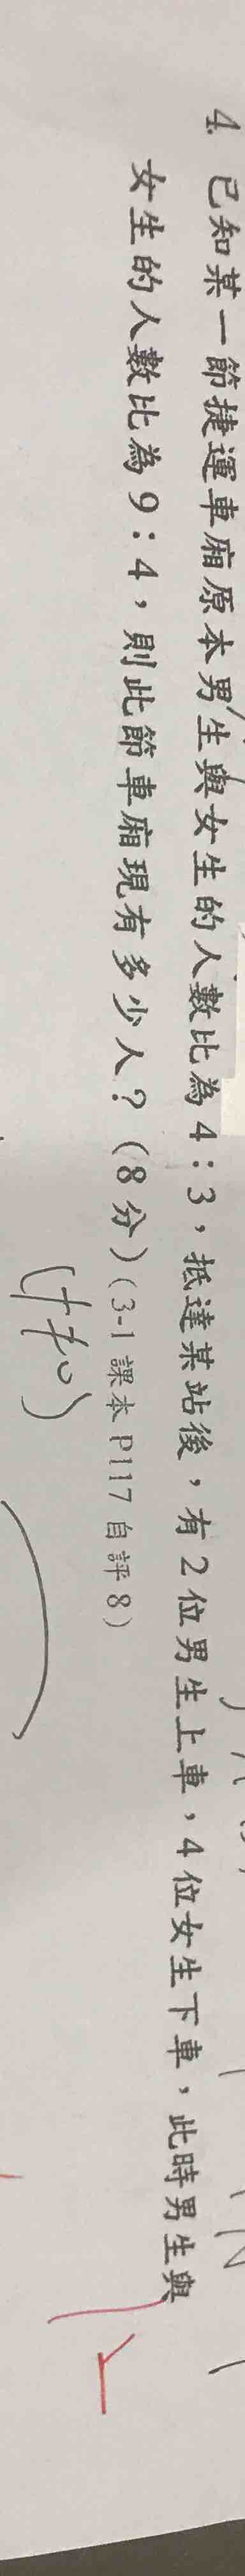 4. 已知某一節捷運車廂原本男生與女生的人數比為4:3,抵達某站後,有2位男生上車,4位女生下車,此時男生與
女生的人數比為9:4,則此節車廂現有多少人?(8分)(3-1課本P117自評8)